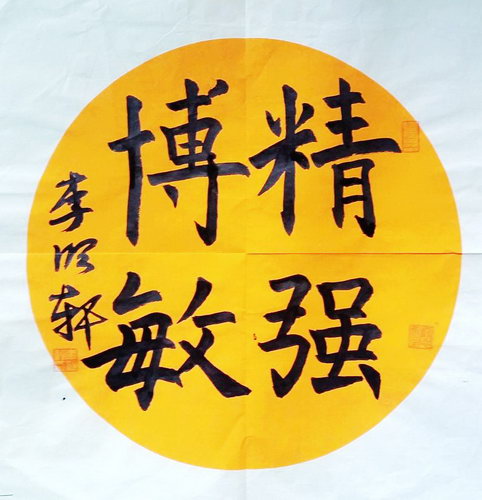 精强
博敏
李轩